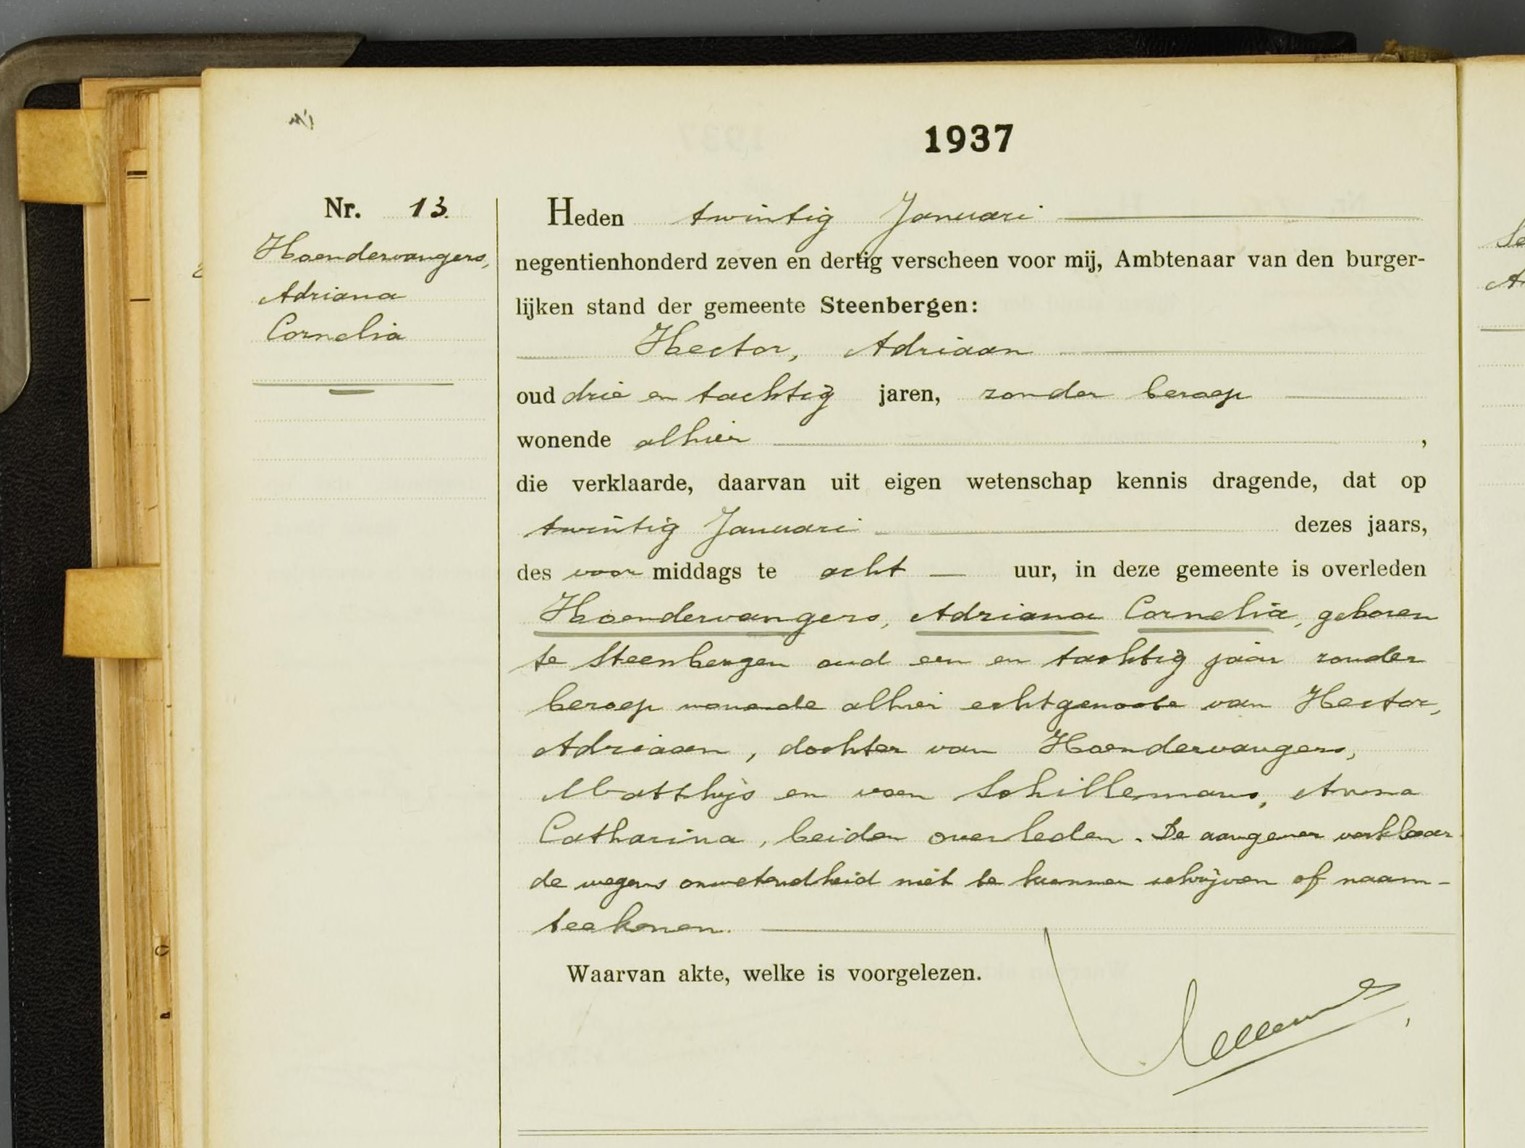 1937
Nr. 13.
Hoendervangers,
Adriana
Cornelia
Heden twintig Januari
negentienhonderd zeven en dertig verscheen voor mij, Ambtenaar van den burger-
lijken stand der gemeente Steenbergen:
Hector, Adriaan
oud drie en tachtig jaren, zonder beroep
wonende alhier ,
die verklaarde, daarvan uit eigen wetenschap kennis dragende, dat op
twintig Januari dezes jaars,
des voor middags te acht uur, in deze gemeente is overleden
Hoendervangers, Adriana Cornelia, geboren
te Steenbergen oud een en tachtig jaar zonder
beroep wonende alhier echtgenoote van Hector,
Adriaan, dochter van Hoendervangers,
Matthijs en van Schillemans, Anna
Catharina, beiden overleden. De aangever verklaar
de wegens onwetendheid niet te kunnen schrijven of naam-
teekenen.
Waarvan akte, welke is voorgelezen.